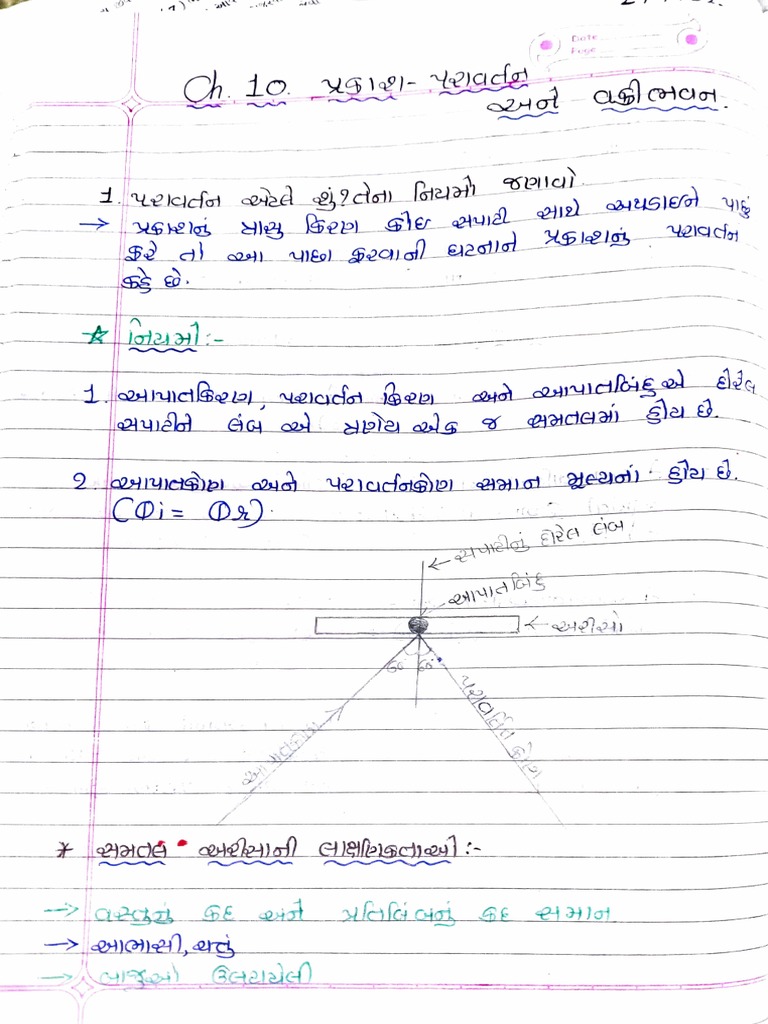 Date
Page
Ch. 10. પ્રકાશ - પરાવર્તન
અને વક્રીભવન.
1. પરાવર્તન એટલે શું? તેના નિયમો જણાવો.
→ પ્રકાશનું ત્રાસુ કિરણ કોઇ સપાટી સાથે અથડાઇને પાછું
ફરે તો આ પાછા ફરવાની ઘટનાને પ્રકાશનું પરાવર્તન
કહે છે.
☆ નિયમો:-
1. આપાતકિરણ, પરાવર્તન કિરણ અને આપાતબિંદુએ દોરેલ
સપાટીને લંબ એ ત્રણેય એક જ સમતલમાં હોય છે.
2. આપાતકોણ અને પરાવર્તનકોણ સમાન મૂલ્યના હોય છે.
(θi = θr)
← સપાટીનું દોરેલ લંબ
આપાતબિંદુ
← અરીસો
60° 60°
પરાવર્તિત કોણ
* સમતલ અરીસાની લાક્ષણિકતાઓ:-
→ વસ્તુનું કદ અને પ્રતિબિંબનું કદ સમાન
→ આભાસી, ચતું
→ બાજુઓ ઉલટાયેલી